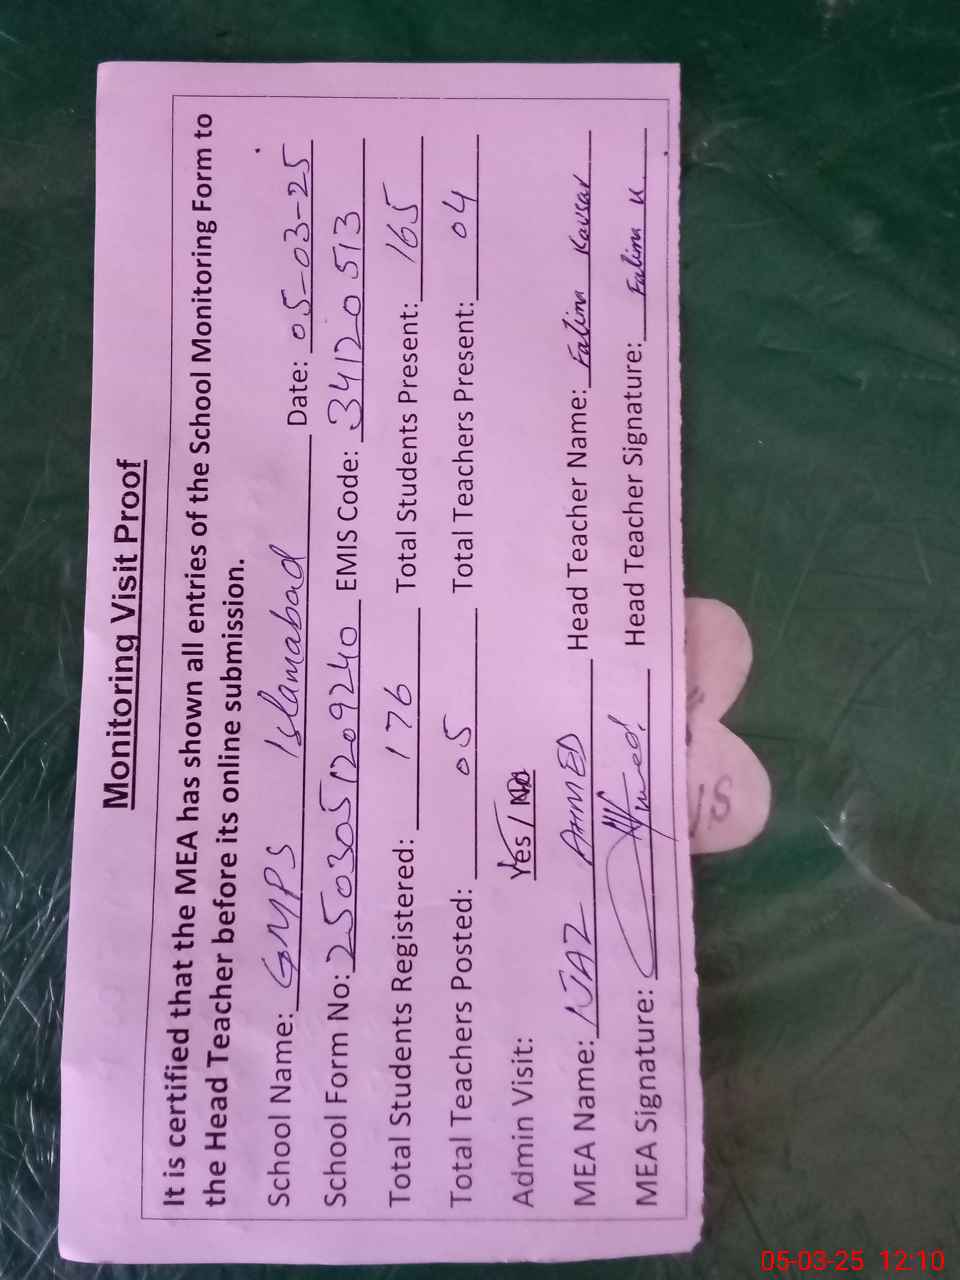 Monitoring Visit Proof
It is certified that the MEA has shown all entries of the School Monitoring Form to
the Head Teacher before its online submission.
School Name: GMPS Islamabad Date: 05-03-25
School Form No: 250305 1209240 EMIS Code: 34120513
Total Students Registered: 176 Total Students Present: 165
Total Teachers Posted: 05 Total Teachers Present: 04
Admin Visit: Yes / No
MEA Name: NJAZ AHMED Head Teacher Name: Falima Kausar
MEA Signature: Head Teacher Signature: Falima K
05-03-25 12:10